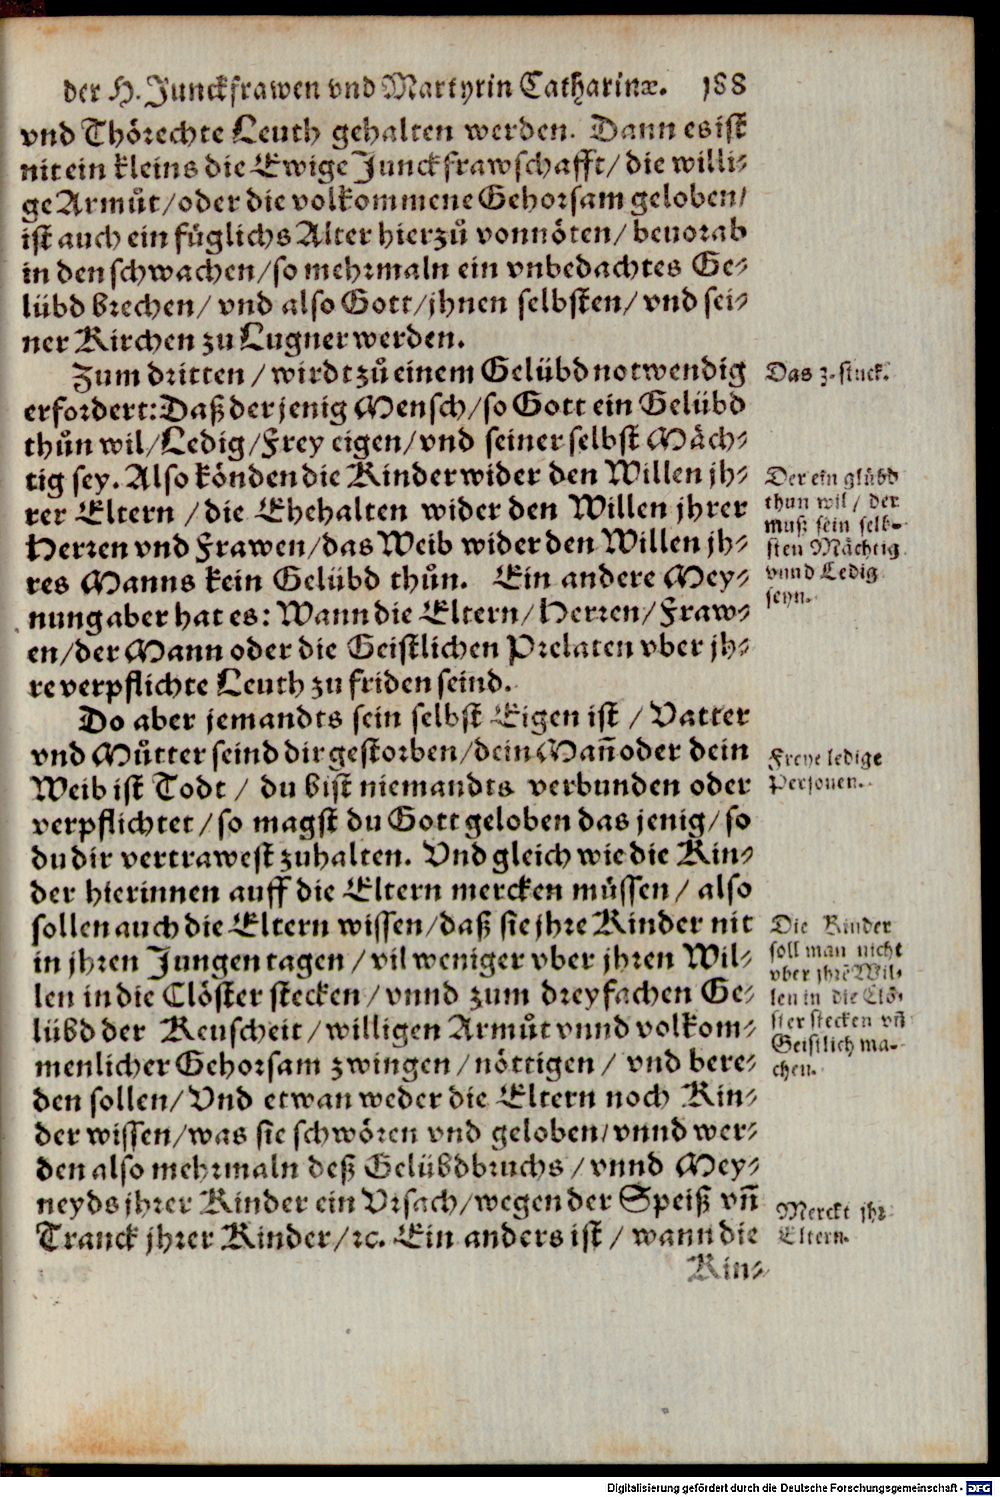 der H. Junckfrawen vnd Martyrin Catharinæ. 188
vnd Thörechte Leuth gehalten werden. Dann es ist
nit ein kleins die Ewige Junckfrawschafft/ die willi-
ge Armůt/ oder die volkommene Gehorsam geloben/
ist auch ein füglichs Alter hierzů vonnöten/ beuorab
in den schwachen/ so mehrmaln ein vnbedachtes Ge-
lübd brechen/ vnd also Gott/ jhnen selbsten/ vnd sei-
ner Kirchen zu Lugner werden.
Zum dritten / wirdt zů einem Gelübd notwendig
Das 3. stuck.
erfordert: Daß der jenig Mensch/ so Gott ein Gelübd
thůn wil/ Ledig/ Frey eigen/ vnd seiner selbst Mäch-
tig sey. Also könden die Kinder wider den Willen jh-
rer Eltern / die Ehehalten wider den Willen jhrer
Herren vnd Frawen/ das Weib wider den Willen jh-
res Manns kein Gelübd thůn. Ein andere Mey-
Der ein glübd
thun wil / der
muß sein selb-
sten Mächtig
vnnd Ledig
seyn.
nung aber hat es: Wann die Eltern/ Herren/ Fraw-
en/ der Mann oder die Geistlichen Prelaten vber jh-
re verpflichte Leuth zu friden seind.
Do aber jemandts sein selbst Eigen ist / Vatter
vnd Můtter seind dir gestorben/ dein Mañ oder dein
Weib ist Todt / du bist niemandts verbunden oder
Freye ledige
Personen.
verpflichtet/ so magst du Gott geloben das jenig/ so
du dir vertrawest zuhalten. Vnd gleich wie die Kin-
der hierinnen auff die Eltern mercken müssen / also
sollen auch die Eltern wissen/ daß sie jhre Kinder nit
in jhren Jungen tagen / vil weniger vber jhren Wil-
len in die Clöster stecken / vnnd zum dreyfachen Ge-
lübd der Keuscheit / willigen Armůt vnnd volkom-
menlicher Gehorsam zwingen / nöttigen / vnd bere-
Die Kinder
soll man nicht
vber jhrẽ Wil-
len in die Clö-
ster stecken vñ
Geistlich ma-
chen.
den sollen/ Vnd etwan weder die Eltern noch Kin-
der wissen/ was sie schwören vnd geloben/ vnnd wer-
den also mehrmaln deß Gelübdbruchs / vnnd Mey-
neyds jhrer Kinder ein Vrsach/ wegen der Speiß vñ
Tranck jhrer Kinder/ ꝛc. Ein anders ist / wann die
Merckt jhr
Eltern.
Kin-
Digitalisierung gefördert durch die Deutsche Forschungsgemeinschaft - DFG